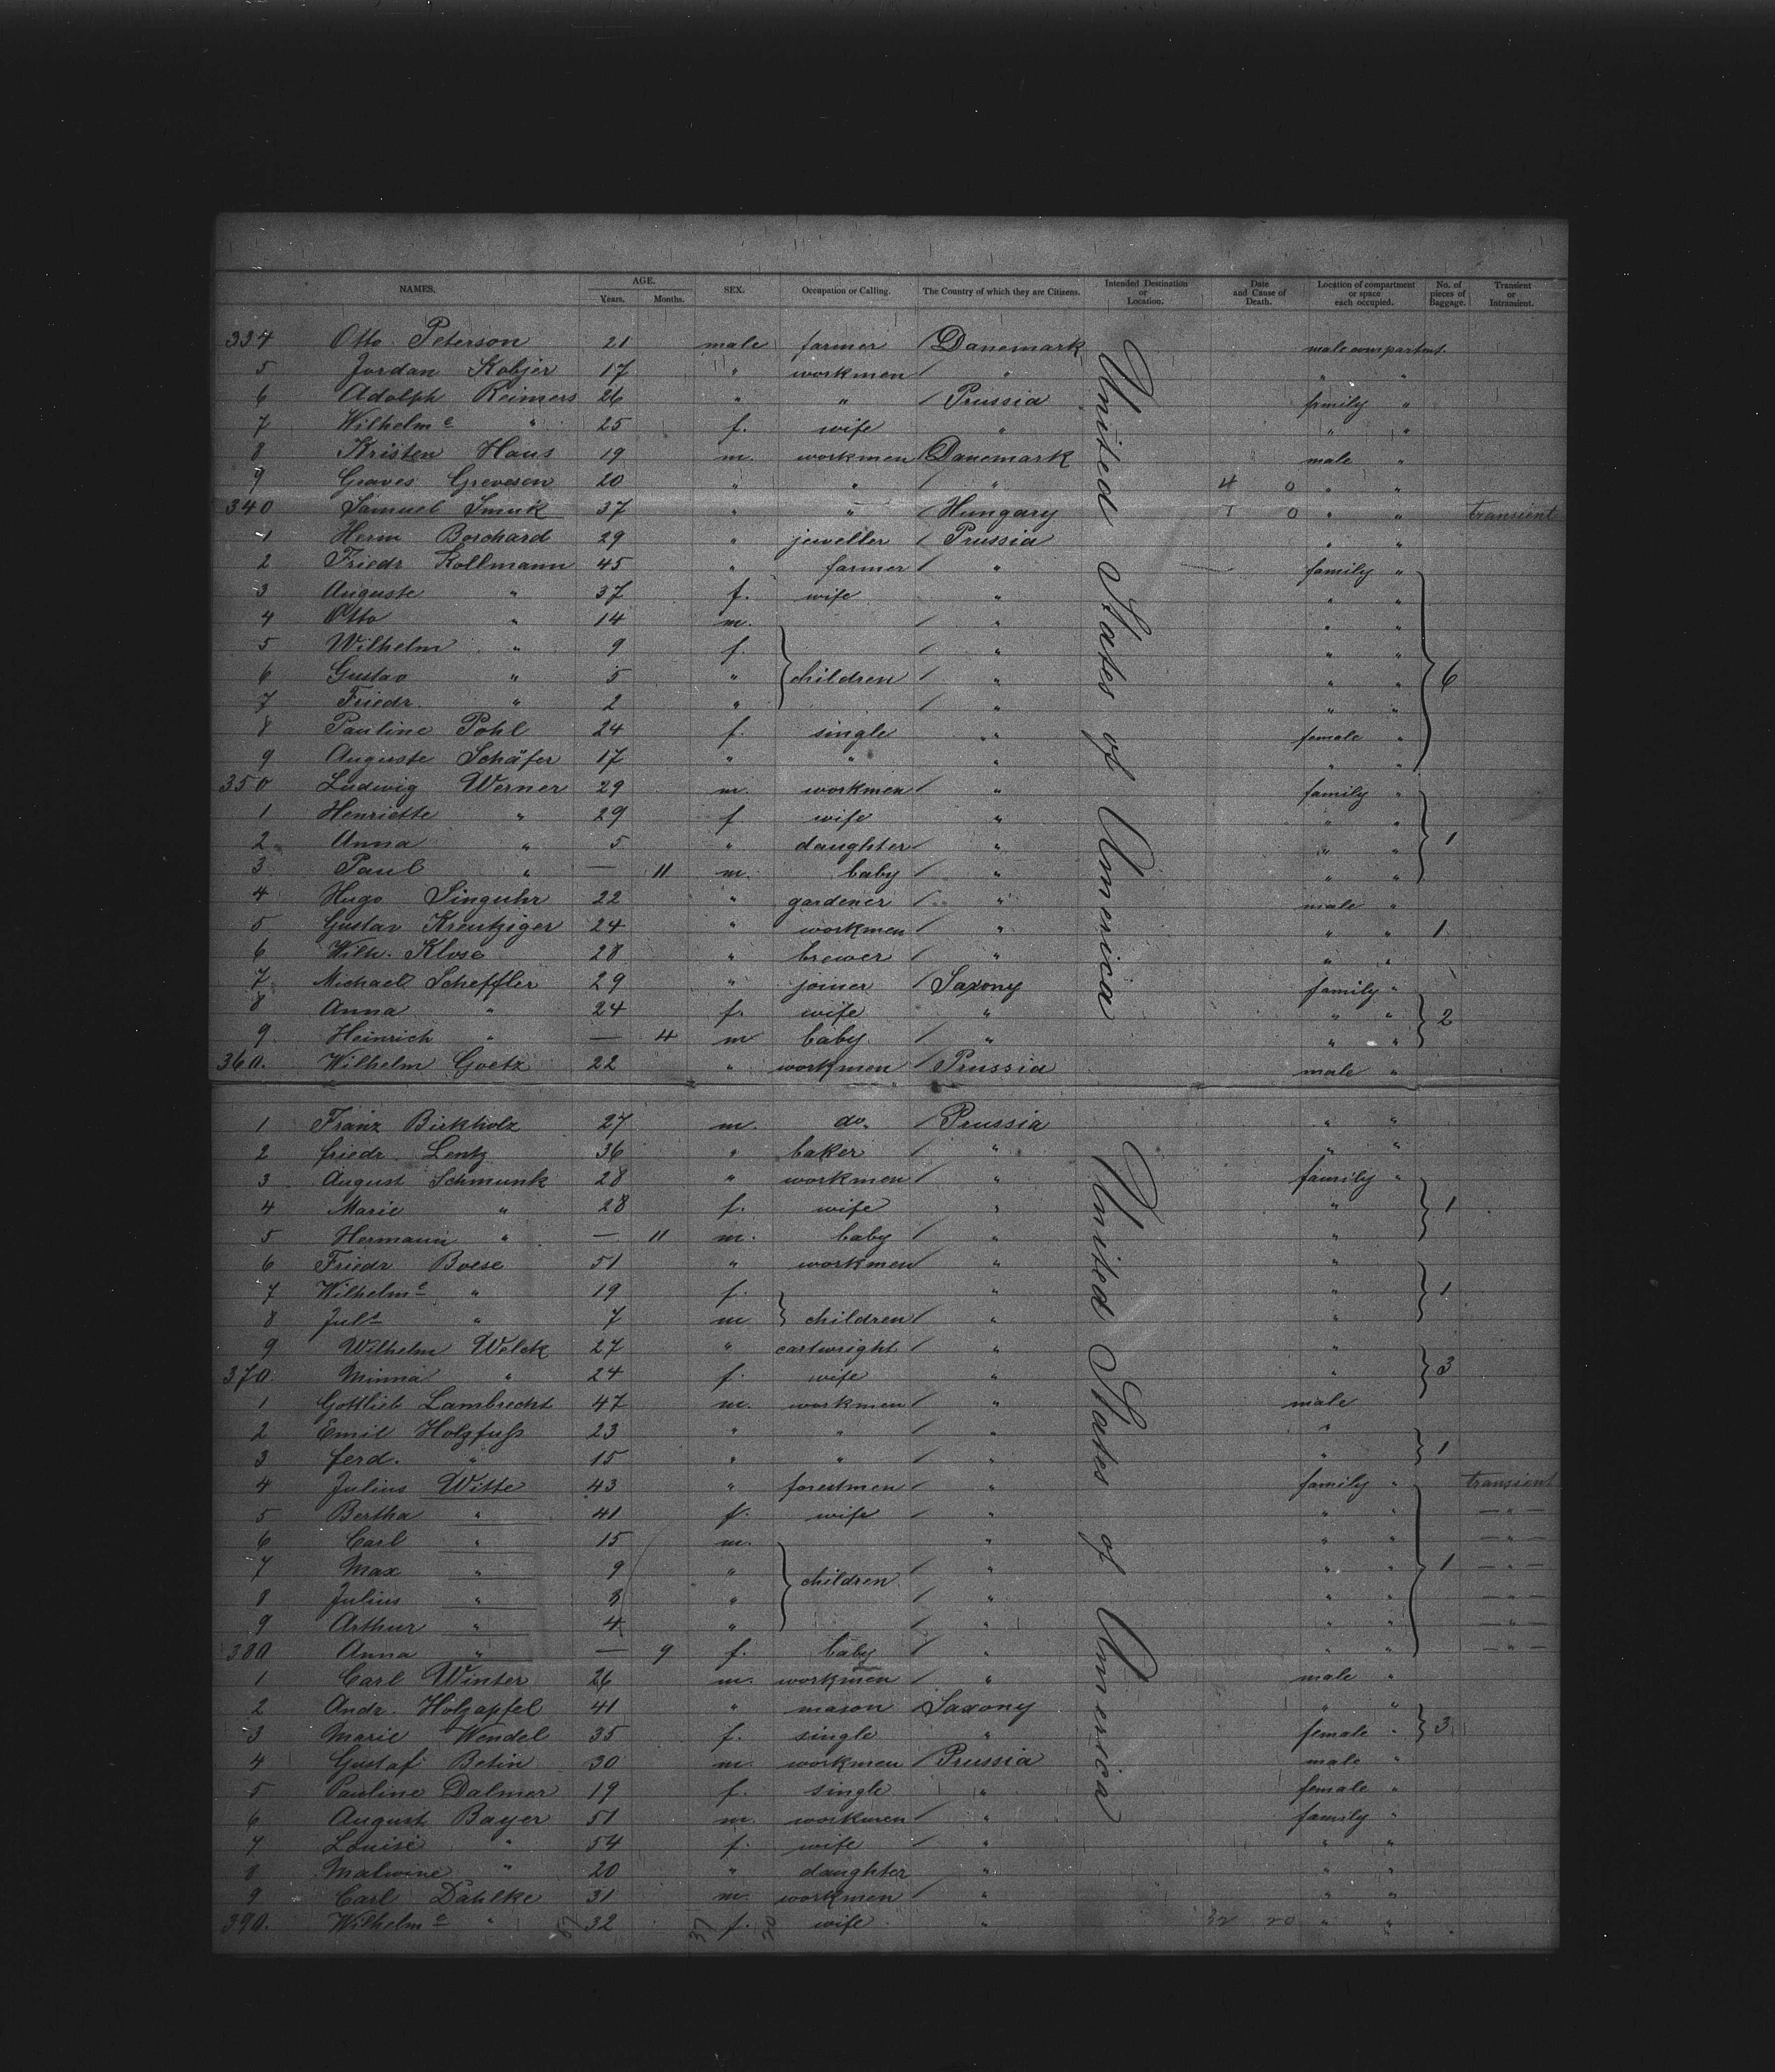 NAMES. AGE. Years. Months. SEX. Occupation or Calling. The Country of which they are Citizens. Intended Destination or Location. Date and Cause of Death. Location of compartment or space each occupied. No. of pieces of Baggage. Transient or Intransient.
334 Otto Peterson 21 male farmer Danemark male compartent.
5 Jordan Kobjer 17 " workmen " " "
6 Adolph Reimers 26 " " Prussia family "
7 Wilhelme " 25 f. wife " " "
8 Kristen Haus 19 m. workmen Danemark male "
9 Graves Grevesen 20 " " " 4 0 " "
340 Samuel Smuk 37 " " Hungary 0 " " transient
1 Herm Borchard 29 " jeweller Prussia " "
2 Friedr Kollmann 45 " farmer " family "
3 Auguste " 37 f. wife " " "
4 Otto " 14 m. " " "
5 Wilhelm " 9 f. " " "
6 Gustav " 5 " children " " " 6
7 Friedr. " 2 " " " "
8 Pauline Pohl 24 f. single " female "
9 Auguste Schäfer 17 " " " " "
350 Ludwig Werner 29 m. workmen " family "
1 Henriette " 29 f wife " " "
2 Anna " 5 " daughter " " " 1
3 Paul " — 11 m. baby " " "
4 Hugo Singuhr 22 " gardener " male "
5 Gustav Kreutziger 24 " workmen " " " 1
6 Wilh. Klose 28 " brewer " " "
7 Michael Scheffler 29 " joiner Saxony family "
8 Anna " 24 f. wife " " " 2
9 Heinrich " — 4 m baby " " "
360. Wilhelm Goetz 22 " workmen Prussia male "
United States of America
1 Franz Birkholz 27 m. do. Prussia " "
2 friedr. Lentz 36 " baker " " "
3 August Schmunk 28 " workmen " family "
4 Marie " 28 f. wife " " 1
5 Hermann " — 11 m. baby " "
6 Friedr Boese 51 " workmen " "
7 Wilhelme " 19 f. " " 1
8 Juls " 7 m children " "
9 Wilhelm Welck 27 " cartwright " "
370. Minna " 24 f. wife " " 3
1 Gottlieb Lambrecht 47 m. workmen " male
2 Emil Holzfuß 23 " " " "
3 ferd. " 15 " " " " 1
4 Julius Witte 43 " forestmen " family " transient
5 Bertha " 41 f. wife " " " — " —
6 Carl " 15 m. " " " — " —
7 Max " 9 " children " " " 1 — " —
8 Julius " 3 " " " " — " —
9 Arthur " 4 " " " " — " —
380 Anna " — 9 f. baby " " " — " —
1 Carl Winter 26 m. workmen " male "
2 Andr. Holzapfel 41 " mason Saxony " "
3 Marie Wendel 35 f. single " female " 3
4 Gustaf Betin 30 m. workmen Prussia male "
5 Pauline Dalmer 19 f. single " female "
6 August Bayer 51 m. workmen " family "
7 Louise " 54 f. wife " " "
8 Malwine " 20 " daughter " " "
9 Carl Dahlke 31 m. workmen " " "
390. Wilhelme " 32 f. wife " " "
United States of America